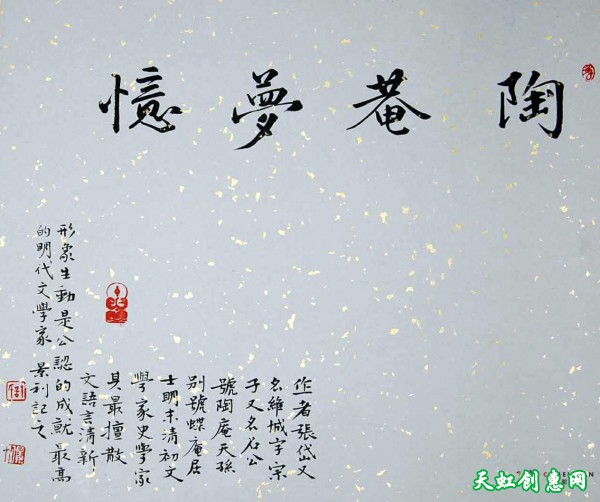 陶菴夢憶
作者張岱又
名維城字宗
子又名石公
號陶庵天孫
別號蝶庵居
士明末清初文
學家史學家
其最擅散
文語言清新
形象生動是公認的成就最高
的明代文學家 景利記之
天虹创惠网